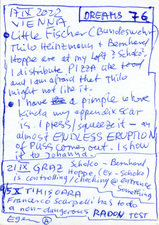 17 IX 2022 DREAMS 76
VIENNA,
• Little Fischer (Bundeswehr)
Thilo Heinzmann & Bernhard
Hoppe are at my left 2 Schokò.
I distribute PIZZA
and I am afraid that Thilo
might not like it.
• I have a pimple where
kinda my appendix scar
is. I PRESS / squeeze it – an
almost ENDLESS ERUPTION
of PUSS comes out. I show
it to Johanna.
21 IX GRAZ Schoko – Bernhard
Hoppe, (Ex-Schoko)
is controlling / checking @ entrance
Something
X TIMISOARA
Francesco Scarpelli has to do
a non-dangerous RADON TEST